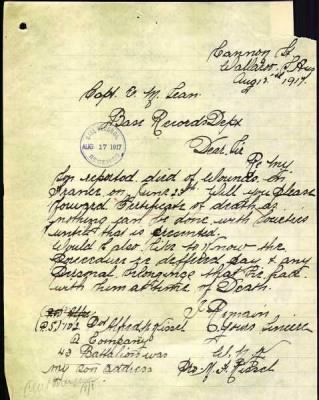 Cannon St
Wallaroo S Aus
Aug 12th 1917
Capt J. M Lean
Base Records Dept
Dear Sir
Re my
Son reported died of Wounds In
France on June 23rd Will you Please
Forward Certificate of death as
nothing can be done with
until that is
Would I also like to know the
Procedure re deffered pay & any
Personal belongings that he had
with him at time of Death.
BASE RECORDS
AUG 17 1917
RECEIVED
I Remain
Yours Sincere
Pd Alfred
A Company
43 Battalion was
my son address